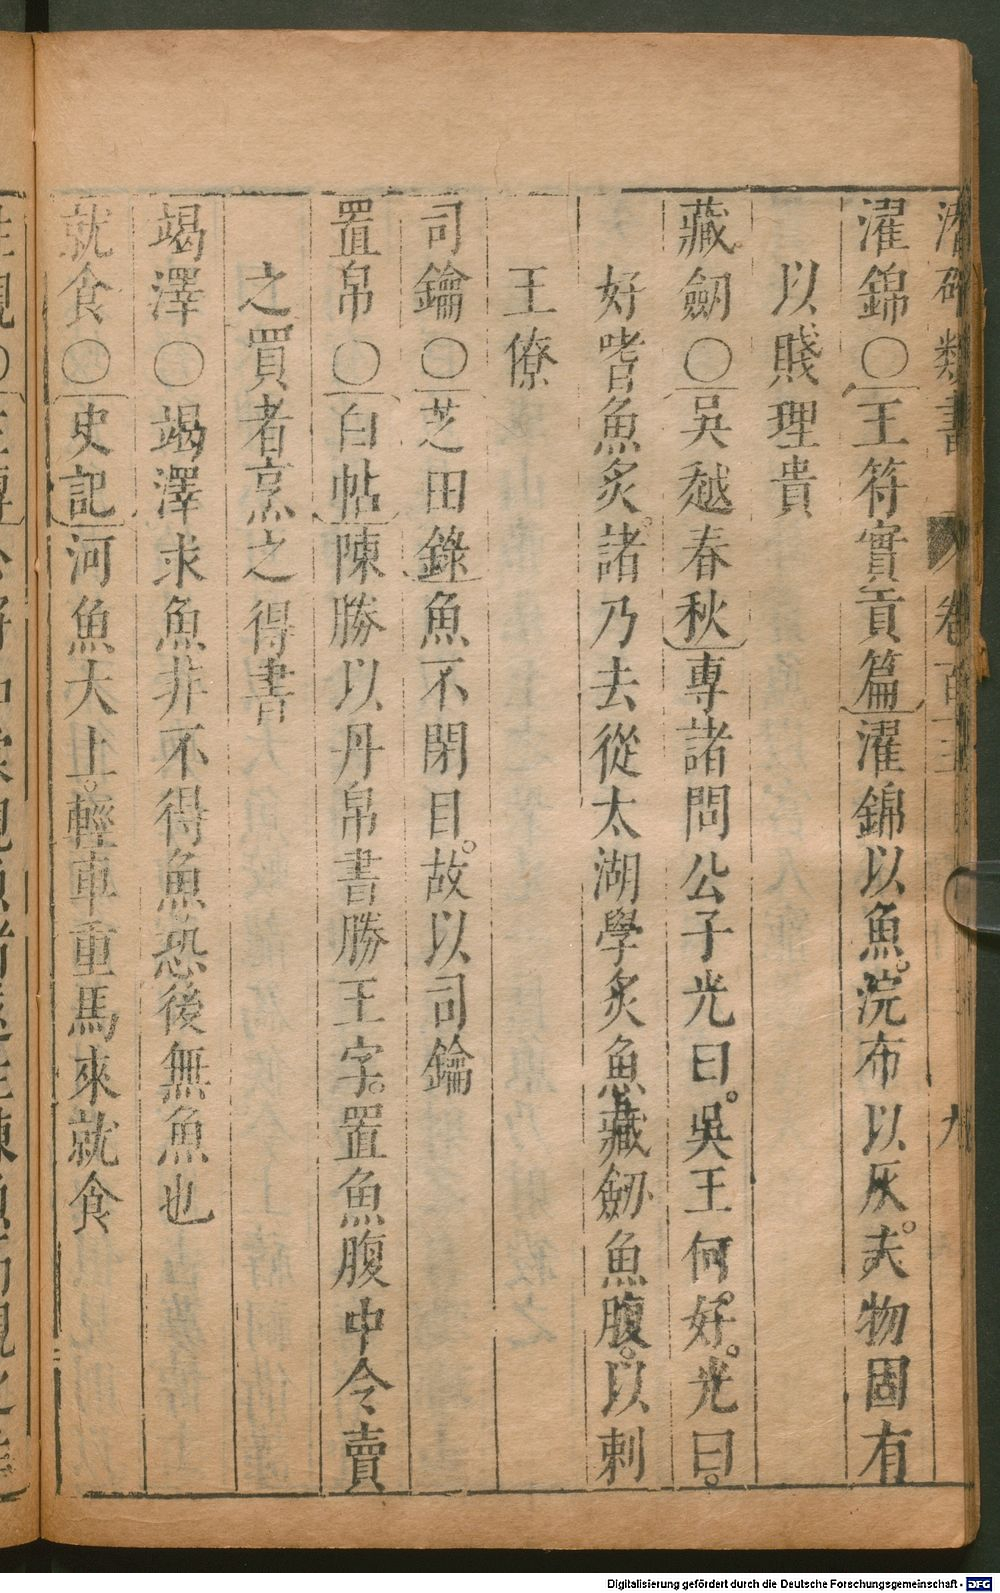 潛確類書 卷百十 九
濯錦〇王符實貢篇濯錦以魚。浣布以灰。夫物固有
以賤理貴
藏劒〇吳越春秋專諸問公子光曰。吳王何好。光曰。
好嗜魚炙。諸乃去從太湖學炙魚藏劒魚腹。以刺
王僚
司鑰〇芝田錄魚不閉目。故以司鑰
置帛〇白帖陳勝以丹帛書勝王字。置魚腹中令賣
之買者烹之得書
竭澤〇竭澤求魚非不得魚恐後無魚也
就食〇史記河魚大上。輕車重馬來就食
Digitalisierung gefördert durch die Deutsche Forschungsgemeinschaft - DFG